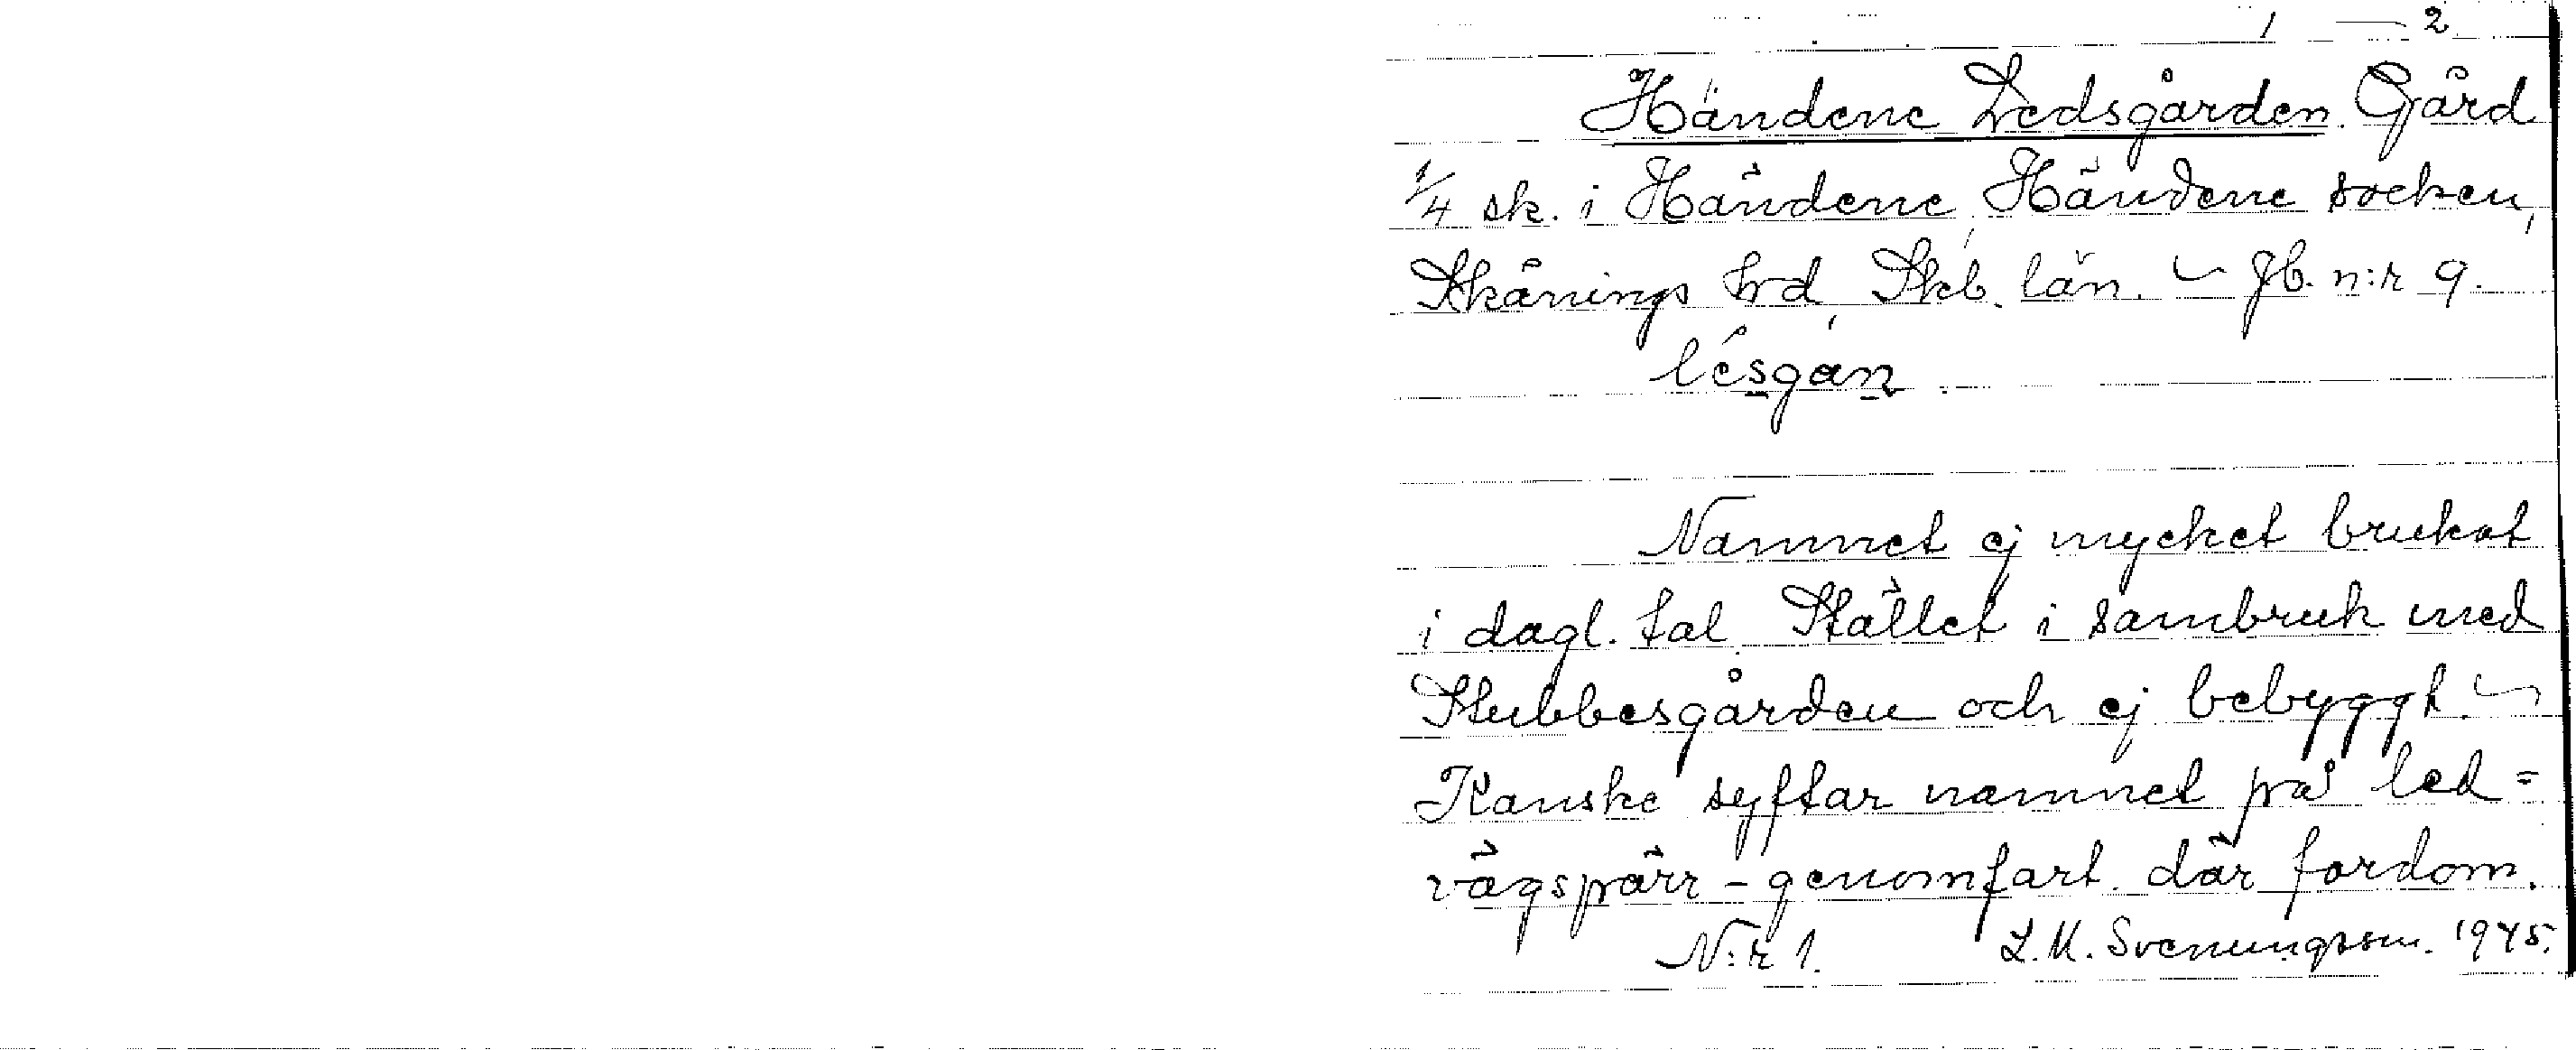 1 — 2
Händene Ledsgården. Gård
1/4 sk. i Händene, Händene socken,
Skånings hrd, Skb. län. ~ Jb. n:r 9.
lésgán
Namnet ej mycket brukat
i dagl. tal. Stället i sambruk med
Stubbesgården och ej bebyggt. ~
Kanske syftar namnet på led =
vägspärr - genomfart där fordom.
N:r 1. L.M. Svenungsson. 1945.